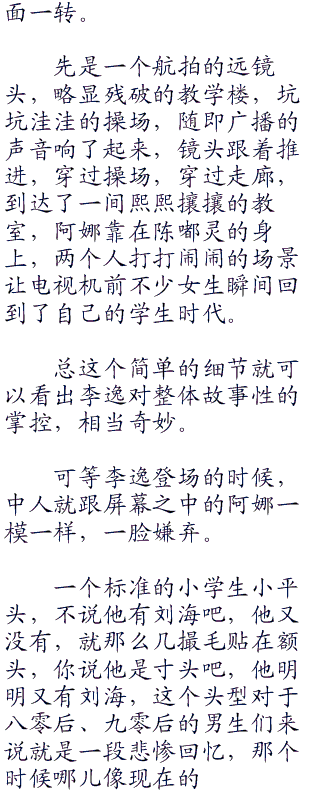 面一转。
先是一个航拍的远镜
头，略显残破的教学楼，坑
坑洼洼的操场，随即广播的
声音响了起来，镜头跟着推
进，穿过操场，穿过走廊，
到达了一间熙熙攘攘的教
室，阿娜靠在陈嘟灵的身
上，两个人打打闹闹的场景
让电视机前不少女生瞬间回
到了自己的学生时代。
总这个简单的细节就可
以看出李逸对整体故事性的
掌控，相当奇妙。
可等李逸登场的时候，
中人就跟屏幕之中的阿娜一
模一样，一脸嫌弃。
一个标准的小学生小平
头，不说他有刘海吧，他又
没有，就那么几撮毛贴在额
头，你说他是寸头吧，他明
明又有刘海，这个头型对于
八零后、九零后的男生们来
说就是一段悲惨回忆，那个
时候哪儿像现在的